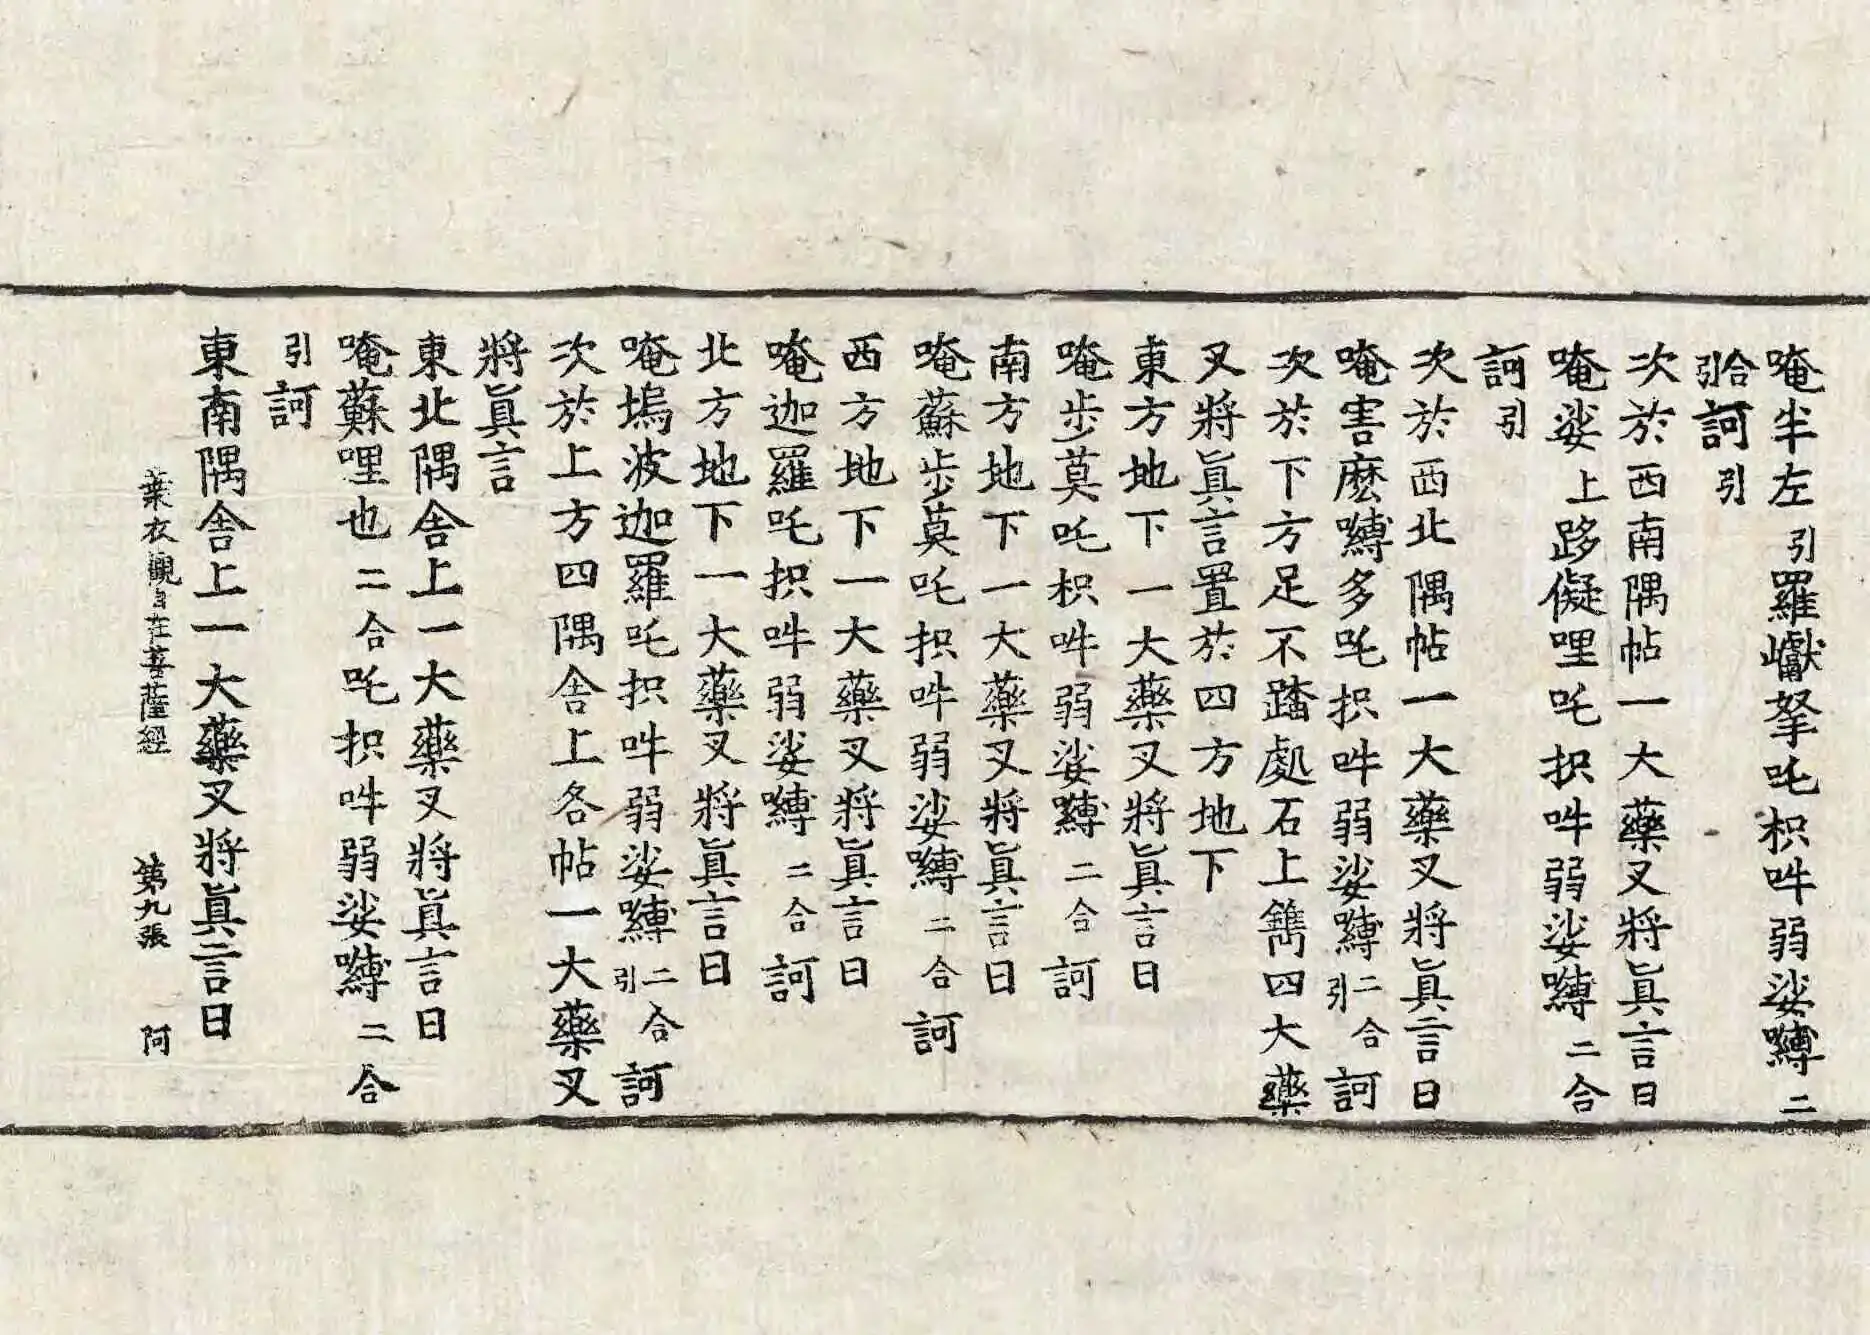 唵半左引羅巘拏吒枳吽弱娑嚩二
合引訶引
次於西南隅帖一大藥叉將眞言曰
唵娑上跢儗哩吒枳吽弱娑嚩二合
訶引
次於西北隅帖一大藥叉將眞言曰
唵害麽嚩多吒枳吽弱娑嚩二合引訶
次於下方足不踏處石上鐫四大藥
叉將眞言置於四方地下
東方地下一大藥叉將眞言曰
唵步莫吒枳吽弱娑嚩二合訶
南方地下一大藥叉將眞言曰
唵蘇步莫吒枳吽弱娑嚩二合訶
西方地下一大藥叉將眞言曰
唵迦羅吒枳吽弱娑嚩二合訶
北方地下一大藥叉將眞言曰
唵塢波迦羅吒枳吽弱娑嚩二合引訶
次於上方四隅舍上各帖一大藥叉
將眞言
東北隅舍上一大藥叉將眞言曰
唵蘇哩也二合吒枳吽弱娑嚩二合
引訶
東南隅舍上一大藥叉將眞言曰
葉衣觀自在菩薩經 第九張 阿